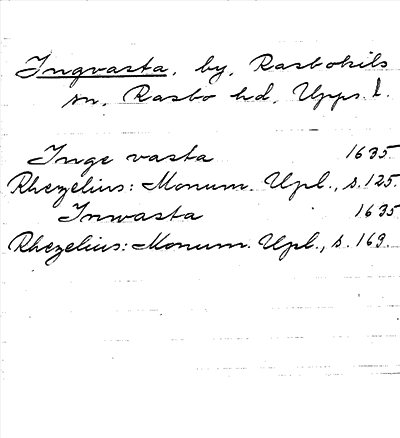 Ingvasta, by, Rasbokils
sn, Rasbo hd, Upps. l.
Inge vasta 1635
Rhezelius: Monum. Upl., s. 125.
Inwasta 1635
Rhezelius: Monum. Upl., s. 169.